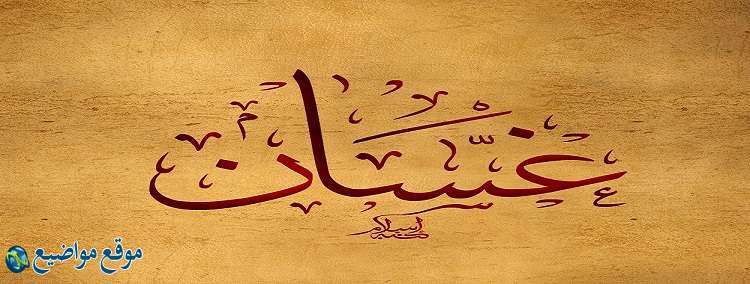 غسّان
موقع مواضيع